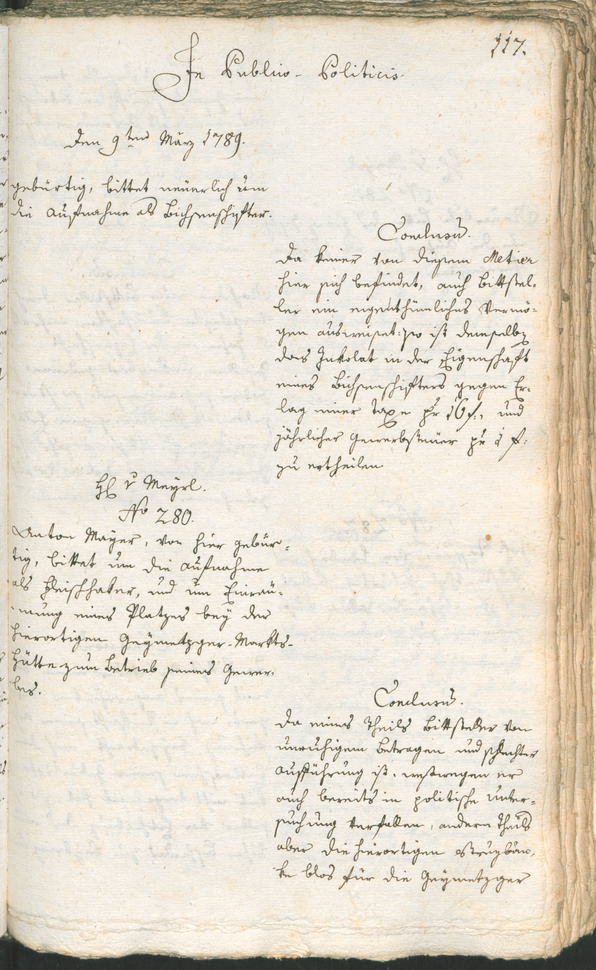 117.
In Publico-Politicis.
Den 9ten März 1789.
gebürtig, bittet neuerlich um
die Aufnahme als Bichsenschifter.
Conclusum.
Da keiner von diesem Metier
hier sich befindet, auch Bittstel-
ler ein eigenthümliches Vermö-
gen ausweiset: so ist demselben
das Inkolat in der Eigenschaft
eines Bichsenschifters gegen Er-
lag einer Taxe pr 16 f., und
jährlicher Gewerbsteuer pr 1 f.
zu ertheilen
H. v Meyrl.
No 280.
Anton Mayer, von hier gebür-
tig, bittet um die Aufnahme
als Fleischhaker, und um Einräu-
mung eines Platzes bey der
hierortigen Geymetzger-Markts-
hütte zum Betrieb seines Gewer-
bes.
Conclusum.
Da eines Theils Bittsteller von
unruhigem Betragen und schlechter
Aufführung ist, weswegen er
auch bereits in politische Unter-
suchung verfallen, andern Theils
aber die hierortigen
ke blos für die Geymetzger